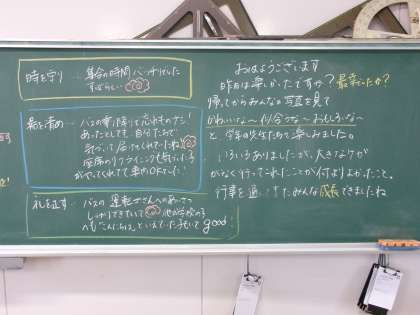 時を守り… 集合の時間 バッチリでした
すばらしい
場を清め… バスの乗り降りで忘れものナシ!
あったとしても、自分たちで
気づいて届けてくれていたね
座席のリクライニングも気づいた子が
やってくれてて車内OKでした!
礼を正す… バスの運転士さんへのあいさつ
しっかりできていて 他の学校の子
へも「こんにちは」といえていた子もいて good!
おはようございます
昨日は楽しかったですか? 最高だったか?
帰ってからみんなの写真を見て
かわいいな〜 似合うな〜 おもしろいな〜
と、学年の先生たちで楽しみました。
いろいろありましたが、大きなケガ
がなく行ってこれたことが何よりよかったこと。
行事を通してまたみんな成長できましたね